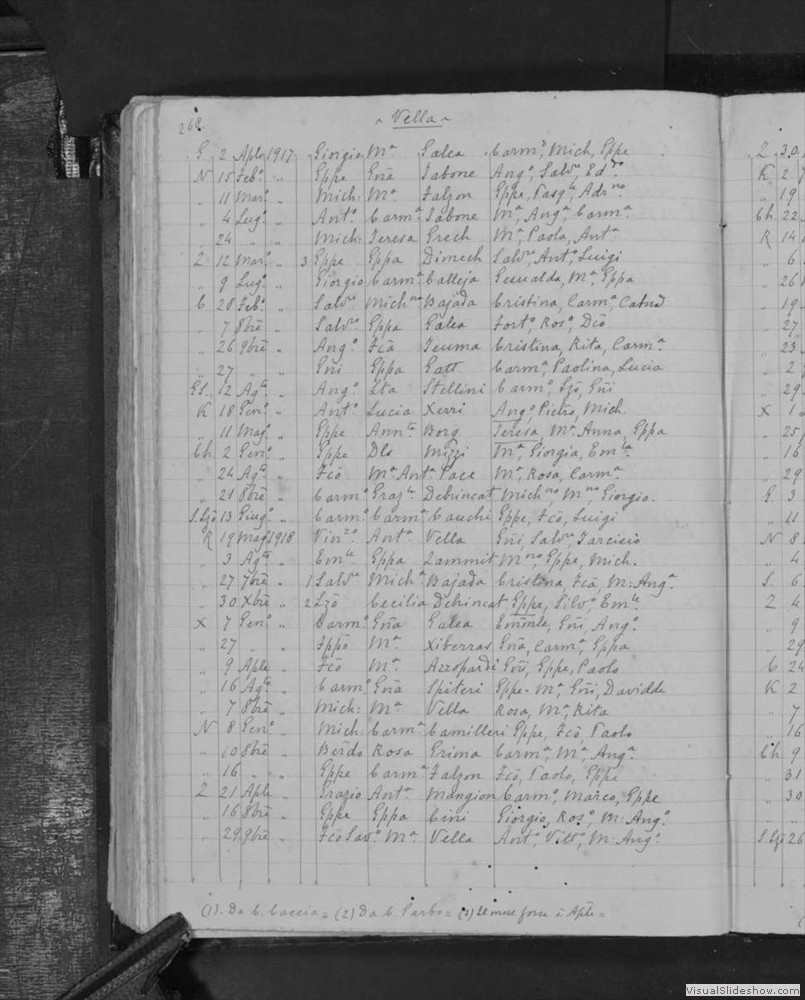 268. ~ Vella ~
G 2 Aple 1917 Giorgio Mª Galea Carmº, Mich, Eppe
N 15 Febº " Eppe Gnã Tabone Angº, Salvʳᵉ, Edʳᵈᵒ
" 11 Marº " Mich: Mª Falzon Eppe, Pasqˡᵉ, Adrⁿᵒ
" 4 Lugº " Antº Carmª Tabone Mª, Angª, Carmª
" 24 " " Mich: Teresa Grech Mª, Paola, Antª
Z 12 Marº " 3 Eppe Eppa Dimech Salvʳᵉ, Antº, Luigi
" 9 Lugº " Giorgio Carmª Calleja Mª, Eppa
C 28 Febº " Salvʳᵉ Michⁿᵃ Bajada Cristina, Carmª, Catnd
" 7 8bre " Salvʳᵉ Eppa Galea Fortº, Rosº, Dcõ
" 26 9bre " Angº Fcã Teuma Cristina, Rita, Carmª
" 27 " " Gñi Eppa Gatt Carmª, Paolina, Lucia
Gs. 12 Agᵗᵒ " Angº Lta Stellini Carmº, Lzõ, Gñi
K 18 Genº " Antº Lucia Xerri Angº, Pietro, Mich.
" 11 Magº " Eppe Annᵗᵃ Borg Teresa, Mª Anna, Eppa
Ch 2 Genº " Eppe Dls Mizzi Mª, Giorgia, Emˡᵃ
" 24 Agᵗᵒ " Fcõ Mª Antª Pace Mª, Rosa, Carmª
" 21 8bre " Carmº Grazˡᵃ Debrincat Michⁿᵒ, Mⁿᵒ Giorgio.
S.Lzõ 13 Giugº " Carmº Carmª Cauchi Eppe, Fcõ, Luigi
R 19 Mag 1918 Vinᶻᵒ Antª Vella Gñi, Salvʳᵉ, Tarcisio
" 3 Agᵗᵒ " Emˡᵉ Eppa Zammit Mⁿᵒ, Eppe, Mich.
" 27 7bre " 1 Salvʳᵉ Michª Bajada Cristina, Fcã, M: Angª
" 30 Xbre " 2 Lzõ Cecilia Debrincat Eppe, Silvº, Emˡᵉ
X 7 Genº " Carmº Gnña Galea Emmle, Gñi, Angº
" 27 " " Fppõ Mª Xiberras Gnã, Carmª, Eppa
" 9 Aple " Fcõ Mª Azzopardi Gñi, Eppe, Paolo
" 16 Agᵗᵒ " Carmº Gnã Spiteri Eppe-Mª, Gñi, Davidde
" 7 8bre " Mich: Mª Vella Rosa, Mª, Rita
N 8 Genº " Mich: Carmª Camilleri Eppe, Fcõ, Paolo
" 10 8bre " Berdo Rosa Grima Carmª, Mª, Angª
" 16 " " Eppe Carmª Falzon Fcõ, Paolo, Eppe
Z 21 Aple " Grazio Antª Mangion Carmº, Marco, Eppe
" 16 8bre " Eppe Eppa Cini Giorgio, Rosº, M: Angº
" 29 9bre " Fcõ Savº Mª Vella Antº, Vittº, M: Angº
(1). Da C. Caccia = (2) Da C. Garbo = (3) Il mese forse è Aple =
Z 30.
K 2
" 19
Ch 22
R 14
" 6
" 26
" 19
" 27
" 23
" 2
" 29
X 1
" 25
" 16
" 29
G. 3
" 11
N 8
" 4
S. 6
Z 4
" 9
" 29
C 24
K 2
" 7
" 16
Ch 9
" 31
" 30
S.Lzõ 26
VisualSlideshow.com